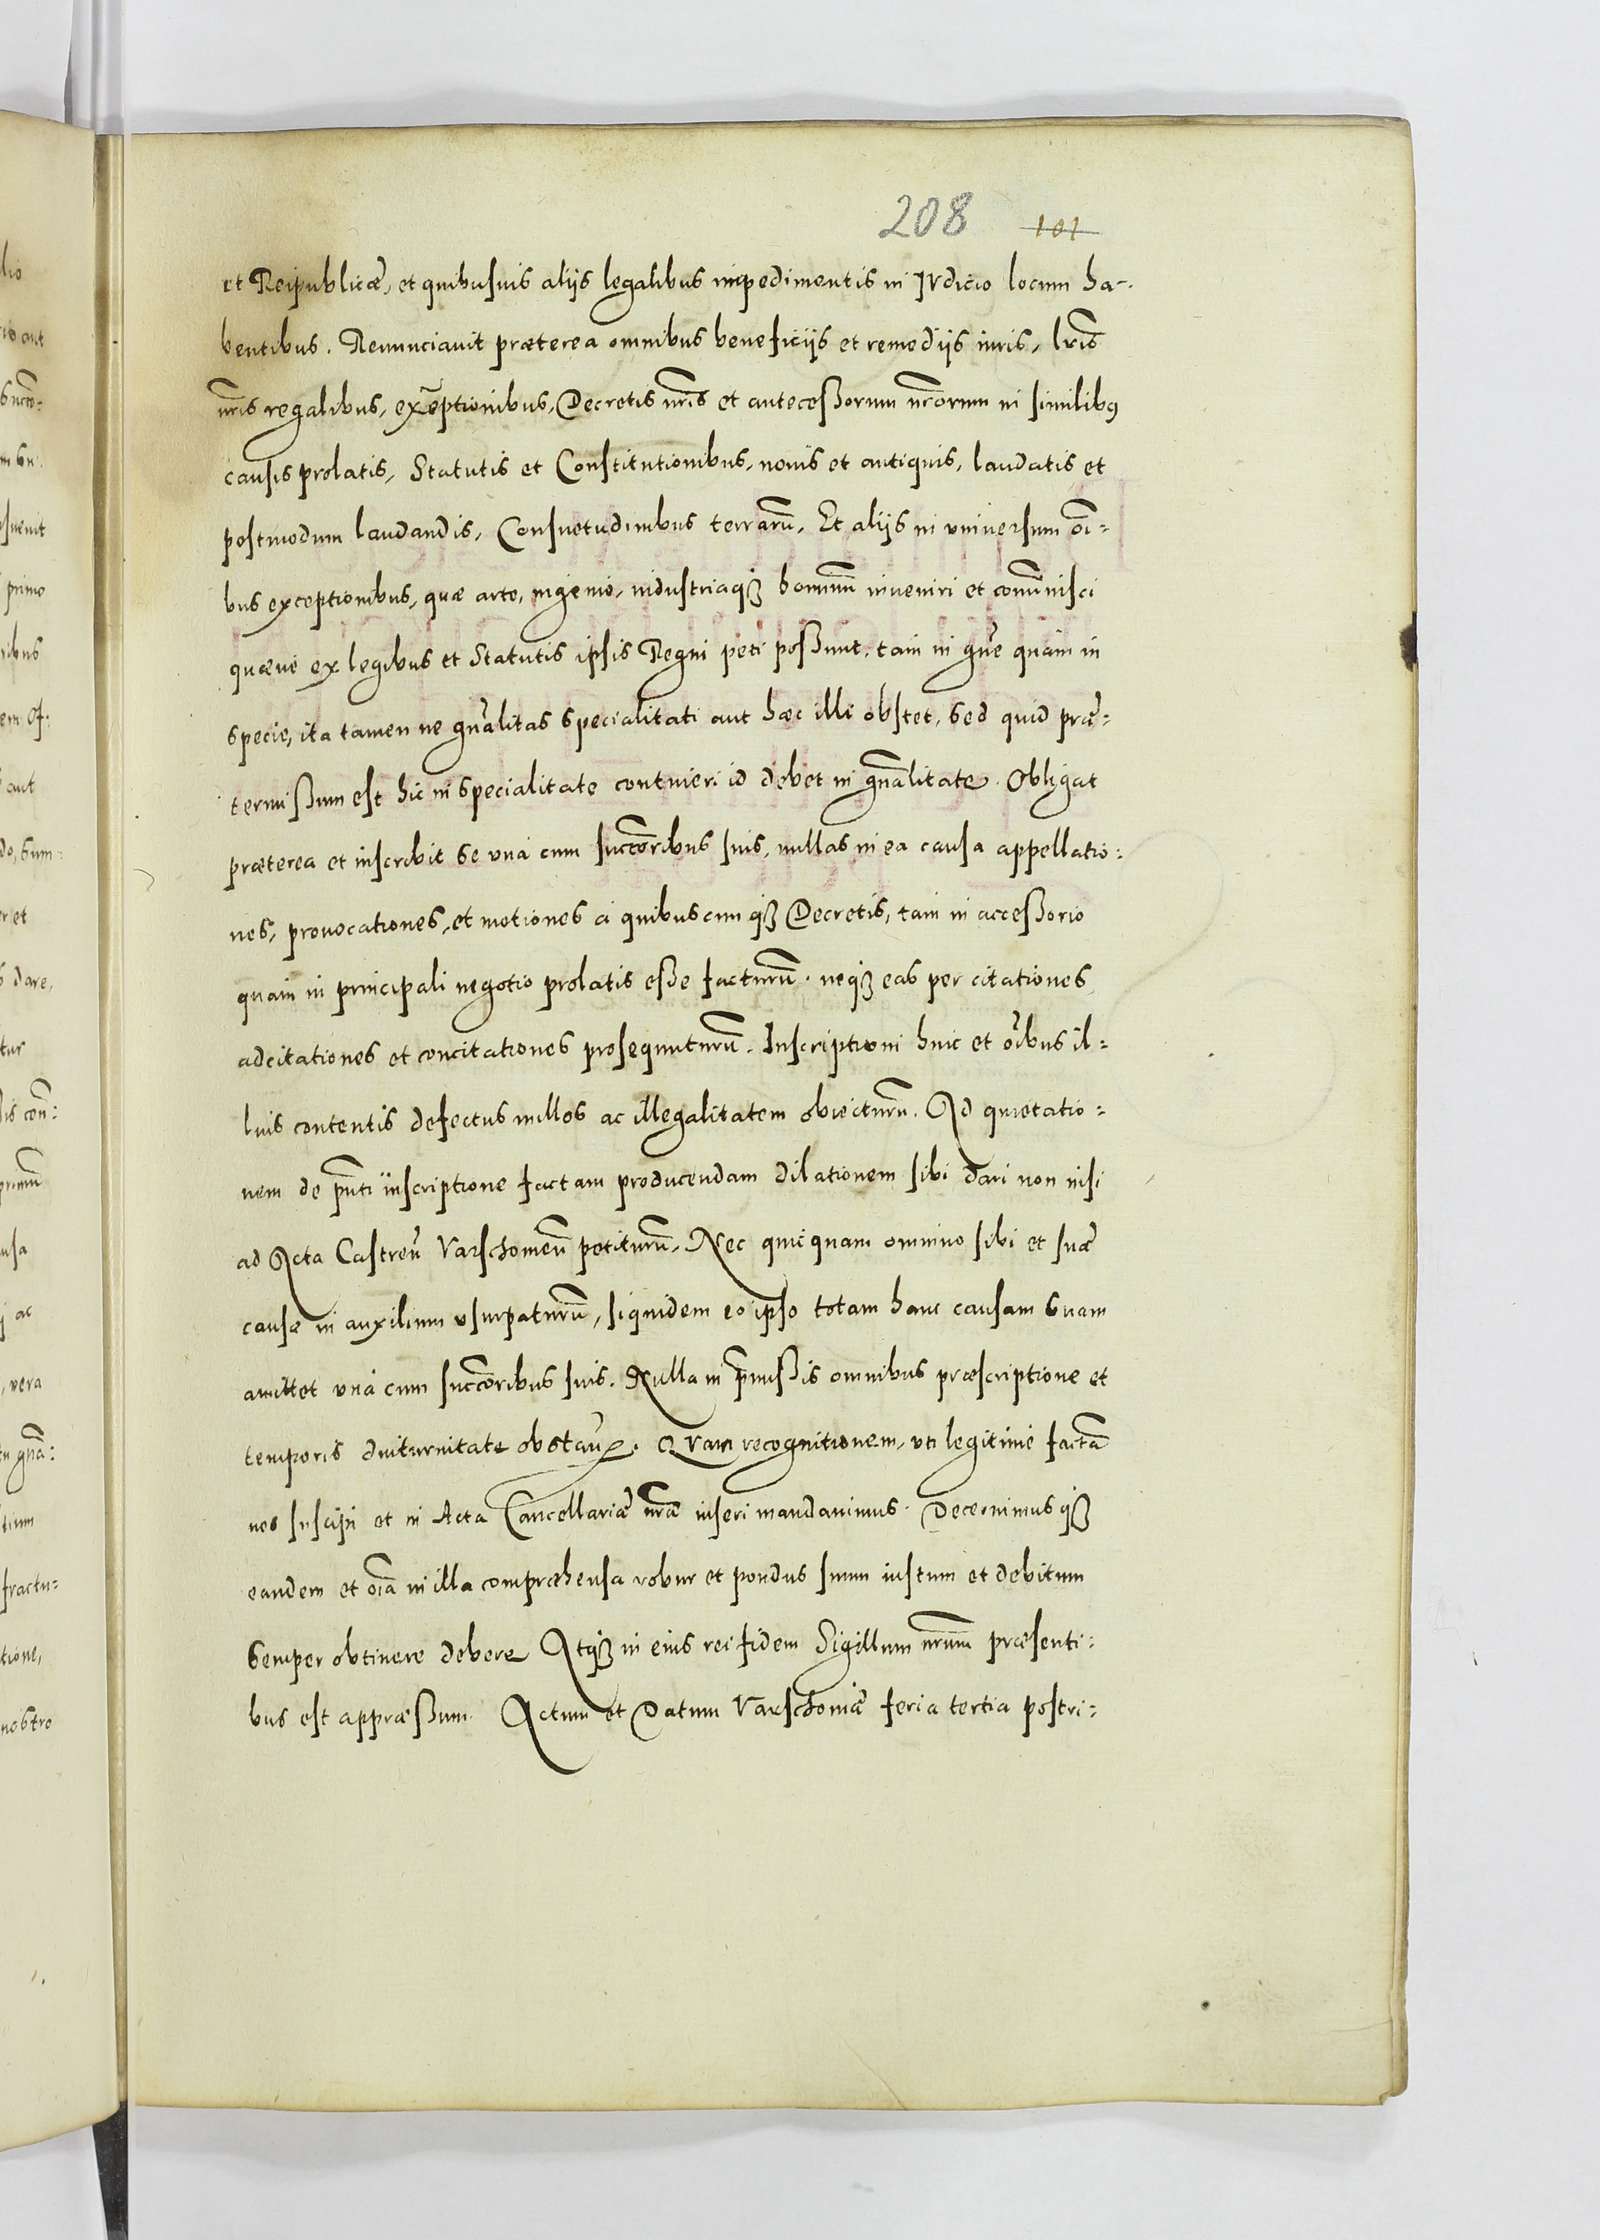 208 101
et Reipublicæ, et quibusuis alijs legalibus impedimentis in Iudicio locum ha-
bentibus. Renunciauit præterea omnibus beneficijs et remedijs iuris, lris
nris regalibus, exemptionibus, Decretis nris et anteceßorum nrorum in similibus
causis prolatis, Statutis et Constitutionibus, nouis et antiquis, laudatis et
postmodum laudandis, Consuetudinibus terrarũ, Et alijs in vniuersum oĩ-
bus exceptionibus, quæ arte, ingenio, industriaqȝ hominũ inueniri et comũnisci
quæue ex legibus et Statutis ipsis Regni peti poßunt, tam in gñe quàm in
specie, ita tamen ne gñalitas specialitati aut hæc illi obstet, sed quid præ-
termißum est hic in specialitate contineri id debet in gñalitate. Obligat
præterea et inscribit se vnà cum succoribus suis, nullas in ea causa appellatio-
nes, prouocationes, et motiones à quibuscunqȝ Decretis, tam in acceßorio
quàm in principali negotio prolatis eße facturũ. neqȝ eas per citationes
adcitationes et concitationes prosequuturũ. Inscriptioni huic et oĩbus il-
lius contentis defectus nullos ac illegalitatem obiecturũ. Ad quietatio-
nem de pñti inscriptione factam producendam dilationem sibi dari non nisi
ad Acta Castreñ Varschouieñ petiturũ. Nec quicquam omnino sibi et suæ
causæ in auxilium vsurpaturũ, siquidem eo ipso totam hanc causam suam
amittet vnà cum succoribus suis. Nulla in p̃mißis omnibus præscriptione et
temporis diuturnitate obstañ. Quam recognitionem, vti legitimè factã
nos suscipi et in Acta Cancellariæ nræ inseri mandauimus. Decernimusqȝ
eandem et oĩa in illa compræhensa robur et pondus suum iustum et debitum
semper obtinere debere Atqȝ in eius rei fidem Sigillum nrum præsenti-
bus est appræßum. Actum et Datum Varschouiæ feria tertia postri-